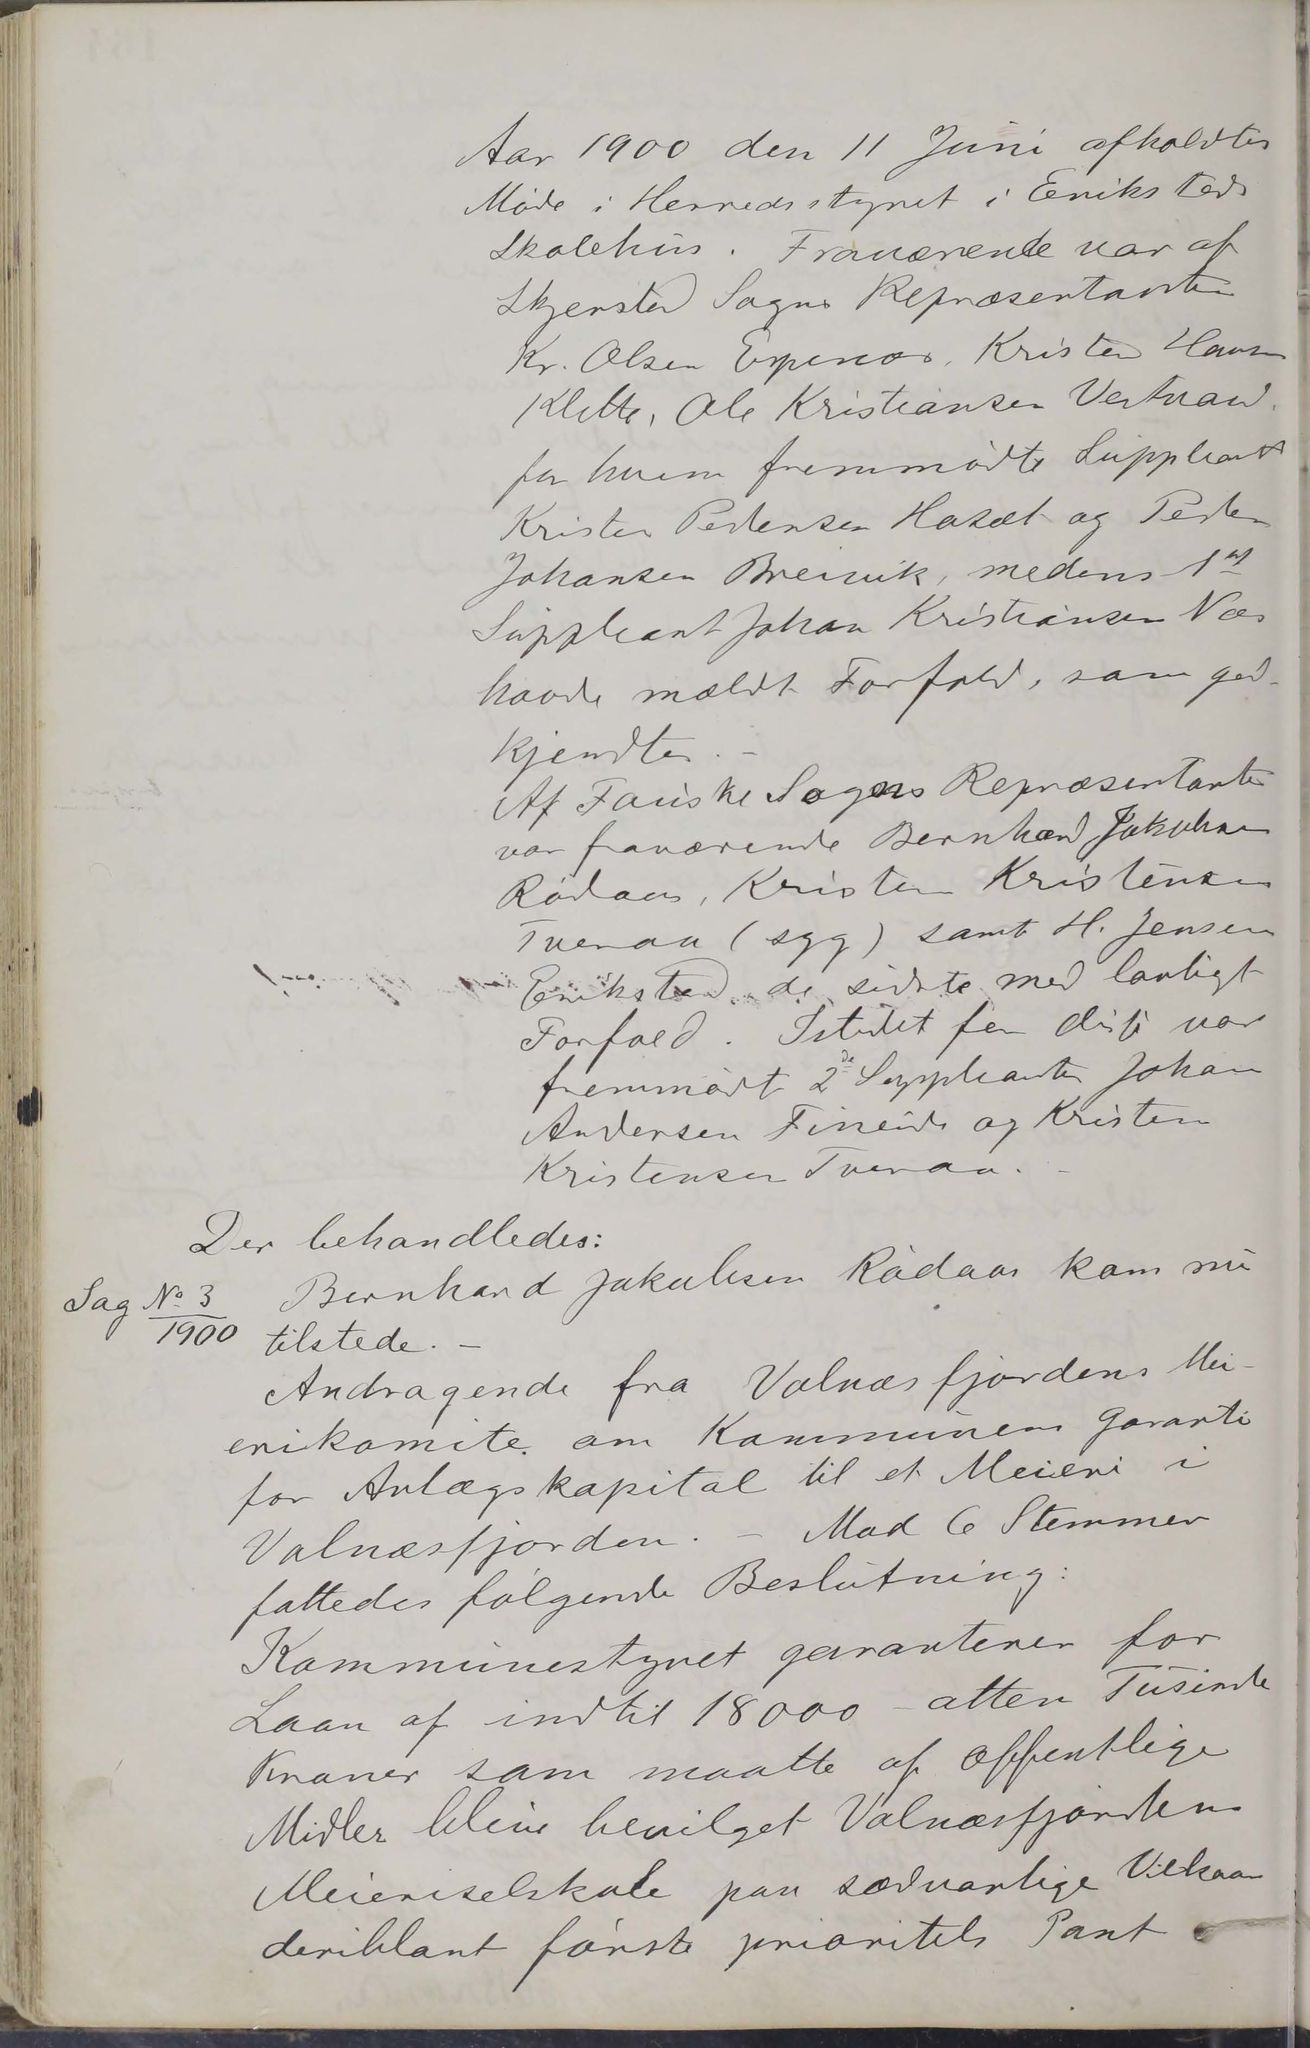 Aar 1900 den 11 Juni afholdtes
Møde i Herredsstyret i Erikstad
Skolehus. Fraværende var af
Skjerstad Sogns Repræsentanter
Kr. Olsen Espenes, Kristen Hansen
Klette, Ole Kristiansen Vestvand.
for hvem fremmødte Suppleant
Kristen Pedersen Hasæt og Peder
Johansen Breivik, medens 1st
Suppleant Johan Kristiansen Næs
havde mældt Forfald, som god-
kjendtes. -
Af Fauske Sogns Repræsentanter
var fraværende Bernhard Jakobsen
Rødaas, Kristen Kristensen
Tveraa (syg) samt H. Jensen
Erikstad de sidste med lovligt
Forfald. Istedet for disse var
fremmødt 2de Suppleanter Johan
Andersen Fineide og Kristen
Kristensen Tveraa. -
Der behandledes:
Sag No 3
1900
Bernhard Jakobsen Rødaas kom nu
tilstede. -
Andragende fra Valnæsfjordens Mei-
erikomite om Kommunens Garanti
for Anlægskapital til et Meieri i
Valnæsfjorden. - Mod 6 Stemmer
fattedes følgende Beslutning:
Kommunestyret garanterer for
Laan af indtil 18000 - atten Tusinde
Kroner som maatte af offentlige
Midler blive bevilget Valnæsfjordens
Meieriselskab paa sædvanlige Vilkaar
deriblant første prioritets Pant